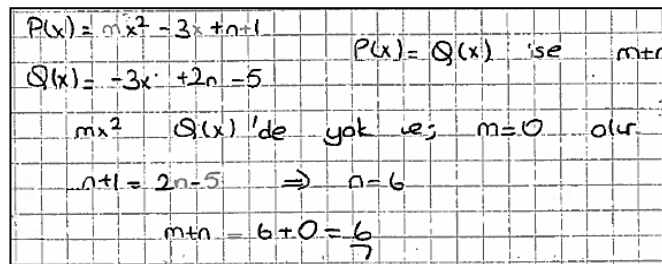 P(x) = mx² - 3x + n+1
P(x) = Q(x) ise m+n
Q(x) = -3x + 2n - 5
mx² Q(x)'de yok ise; m=0 olur
n+1 = 2n-5 ⇒ n=6
m+n = 6+0 = 6